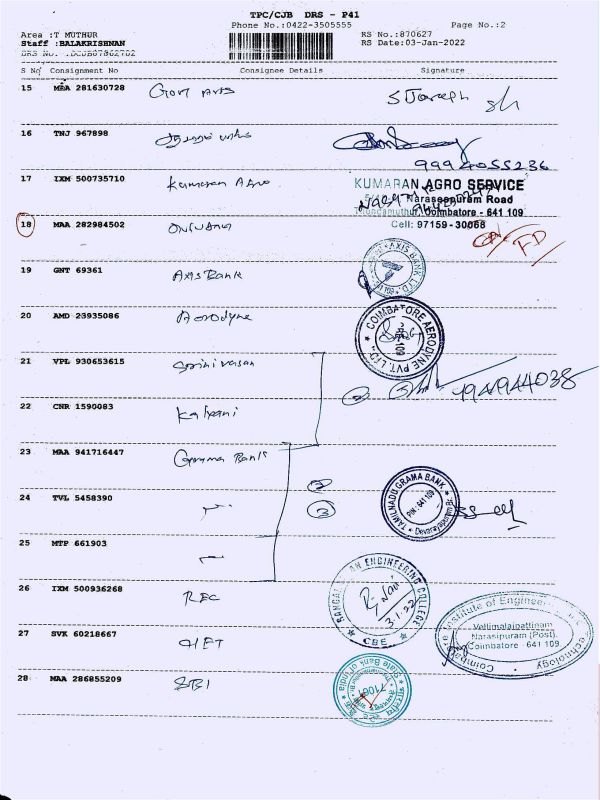 TPC/CJB DRS - P41
Phone No.:0422-3505555 Page No.:2
Area :T MUTHUR RS No.:870627
Staff :BALAKRISHNAN RS Date:03-Jan-2022
DRS No.
S No Consignment No Consignee Details Signature
15 MAA 281630728 Govt Arts S Joseph
16 TNJ 967898
9994055236
17 IXM 500735710 Kumaran Agro
KUMARAN AGRO SERVICE
Naraseepuram Road
Coimbatore - 641 109
Cell: 97159-30068
18 MAA 282984502
19 GNT 69361 Axis Bank
AXIS BANK LTD.
20 AMD 23935086 Aerodyne
COIMBATORE AERODYNE PVT. LTD
641 109
21 VPL 930653615 Srinivasan
22 CNR 1590083 Kalpani
23 MAA 941716447 Grama Bank
24 TVL 5458390
TAMILNADU GRAMA BANK
PIN-641 109
Devarayapuram Br.
25 MTP 661903
26 IXM 500936268 REC
ENGINEERING COLLEGE
3.1.22
CBE
27 SVK 60218667 CIET
Coimbatore Institute of Engineering and Technology
Vellimalaipattinam
Narasipuram (Post).
Coimbatore - 641 109
28 MAA 286855209 SBI
State Bank of India